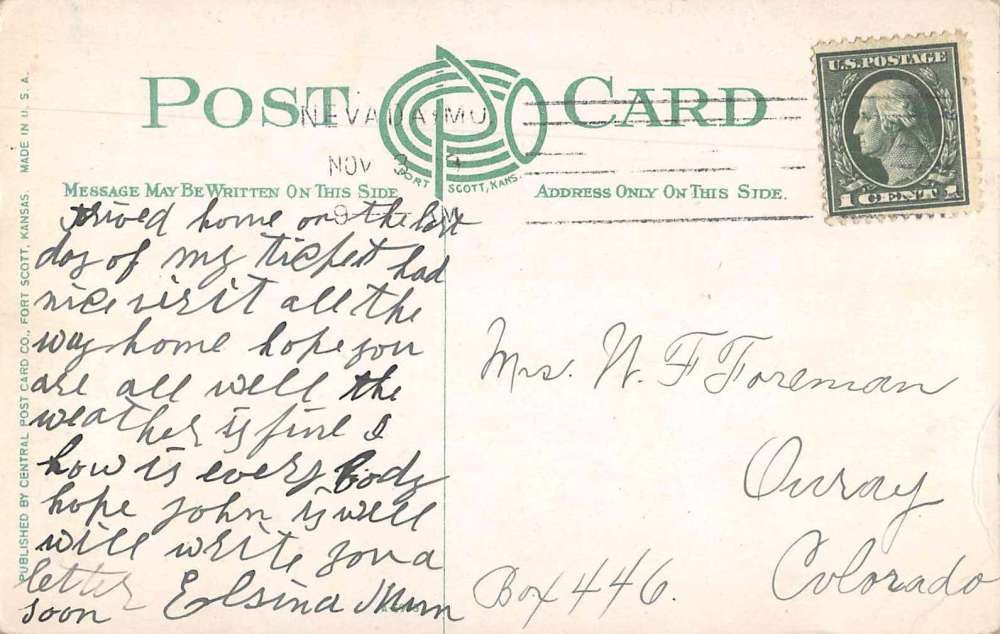 POST CARD
NEVADA MO.
NOV
FORT SCOTT, KANS.
MESSAGE MAY BE WRITTEN ON THIS SIDE
ADDRESS ONLY ON THIS SIDE.
U.S. POSTAGE
1 CENT 1
PUBLISHED BY CENTRAL POST CARD CO., FORT SCOTT, KANSAS. MADE IN U. S. A.
rived home on the last
day of my ticket had
nice visit all the
way home hope you
are all well the
weather is fine
how is every body
hope john is well
will write you a
letter
soon Elsina
Mrs. W. F Foreman
Ouray
Colorado
Box 446.